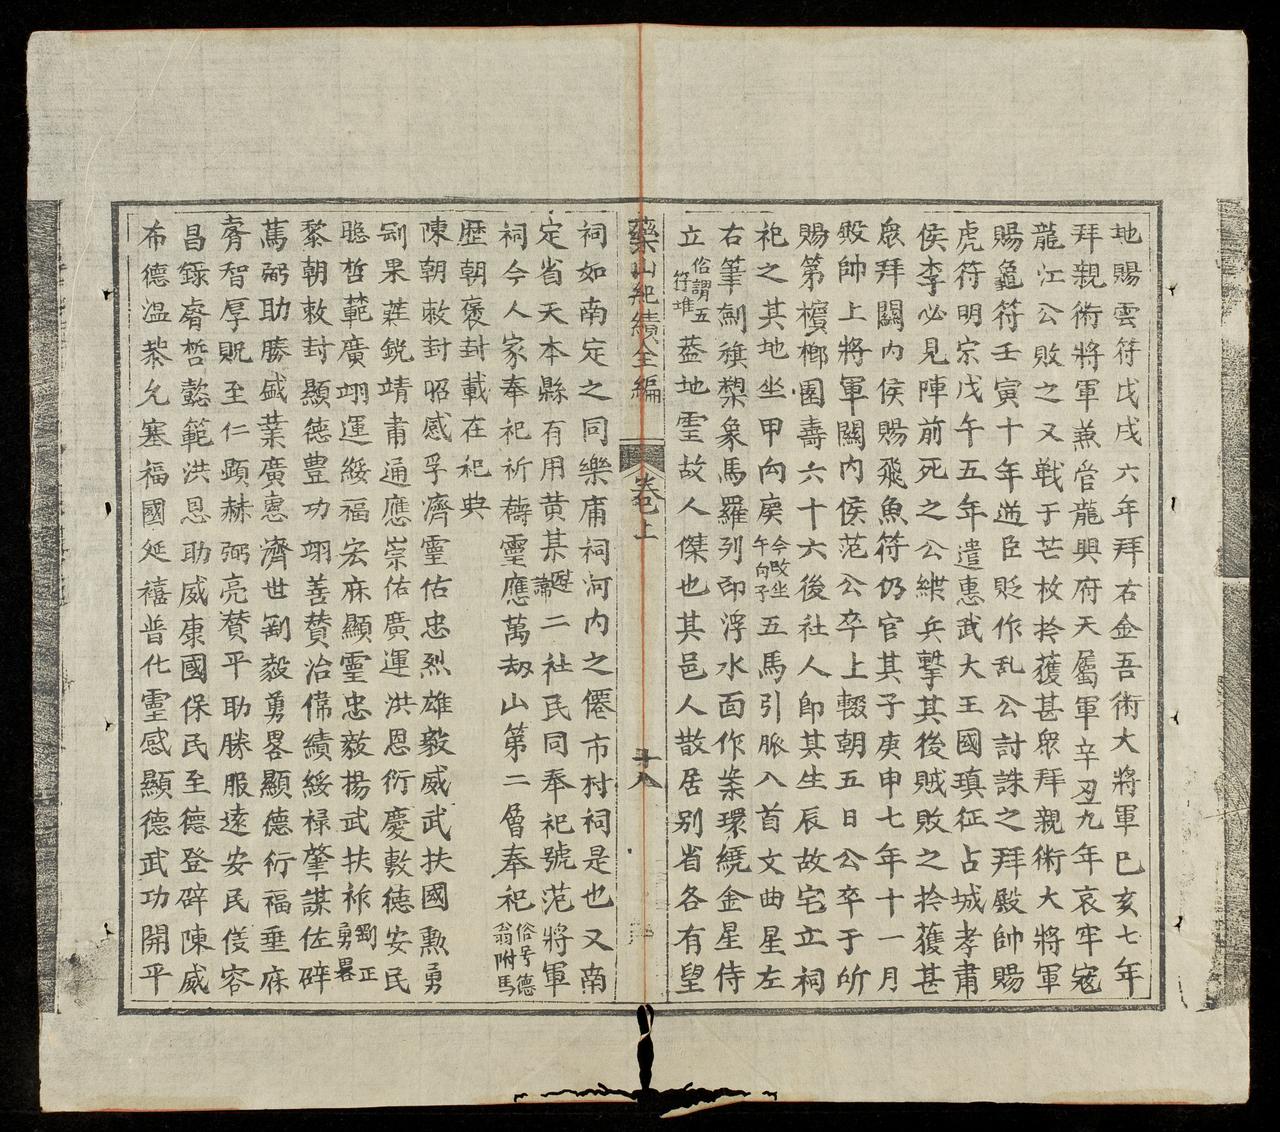 地賜雲符戊戌六年拜右金吾衛大將軍已亥七年
拜親衛將軍兼管龍興府天屬軍辛丑九年哀牢寇
龍江公敗之又戰于芒枚拎獲甚衆拜親衛大將軍
賜龜符壬寅十年逆臣貶作乱公討誅之拜殿帥賜
虎符明宗戊午五年遣惠武大王國瑱征占城孝肅
侯李必見陣前死之公縱兵擊其後賊敗之拎獲甚
衆拜關內侯賜飛魚符仍官其子庚申七年十一月
殿帥上將軍關內侯范公卒上輟朝五日公卒于所
賜第檳榔園壽六十六後社人即其生辰故宅立祠
祀之其地坐甲向庚今改坐午向子五馬引脉八首文曲星左
右筆劍旗槊象馬羅列印浮水面作案環繞金星侍
立俗謂五符堆葢地灵故人傑也其邑人散居别省各有望
藥山紀績全編 卷上 十八
祠如南定之同樂庸祠河內之僊市村祠是也又南
定省天本縣有用黄某懸諱二社民同奉祀號范將軍
祠今人家奉祀祈禱靈應萬刼山第二層奉祀俗号德翁附馬
歷朝褒封載在祀典
陳朝敕封昭感孚濟靈佑忠烈雄毅威武扶國勳勇
剛果英銳靖肅通應崇佑廣運洪恩衍慶敷德安民
聰哲範廣翊運綏福宏庥顯靈忠毅揚武扶祚剛正勇畧
黎朝敕封顯德豊功翊善贊治偉績綏祿肇謀佐辟
萬弼助勝盛業廣惠濟世剛毅勇畧顯德衍福垂庥
睿智厚貺至仁顯赫弼亮贊平助勝服逺安民儀容
昌錄睿哲懿範洪恩助威康國保民至德登辟陳威
布德温恭允塞福國延禧普化靈感顯德武功開平